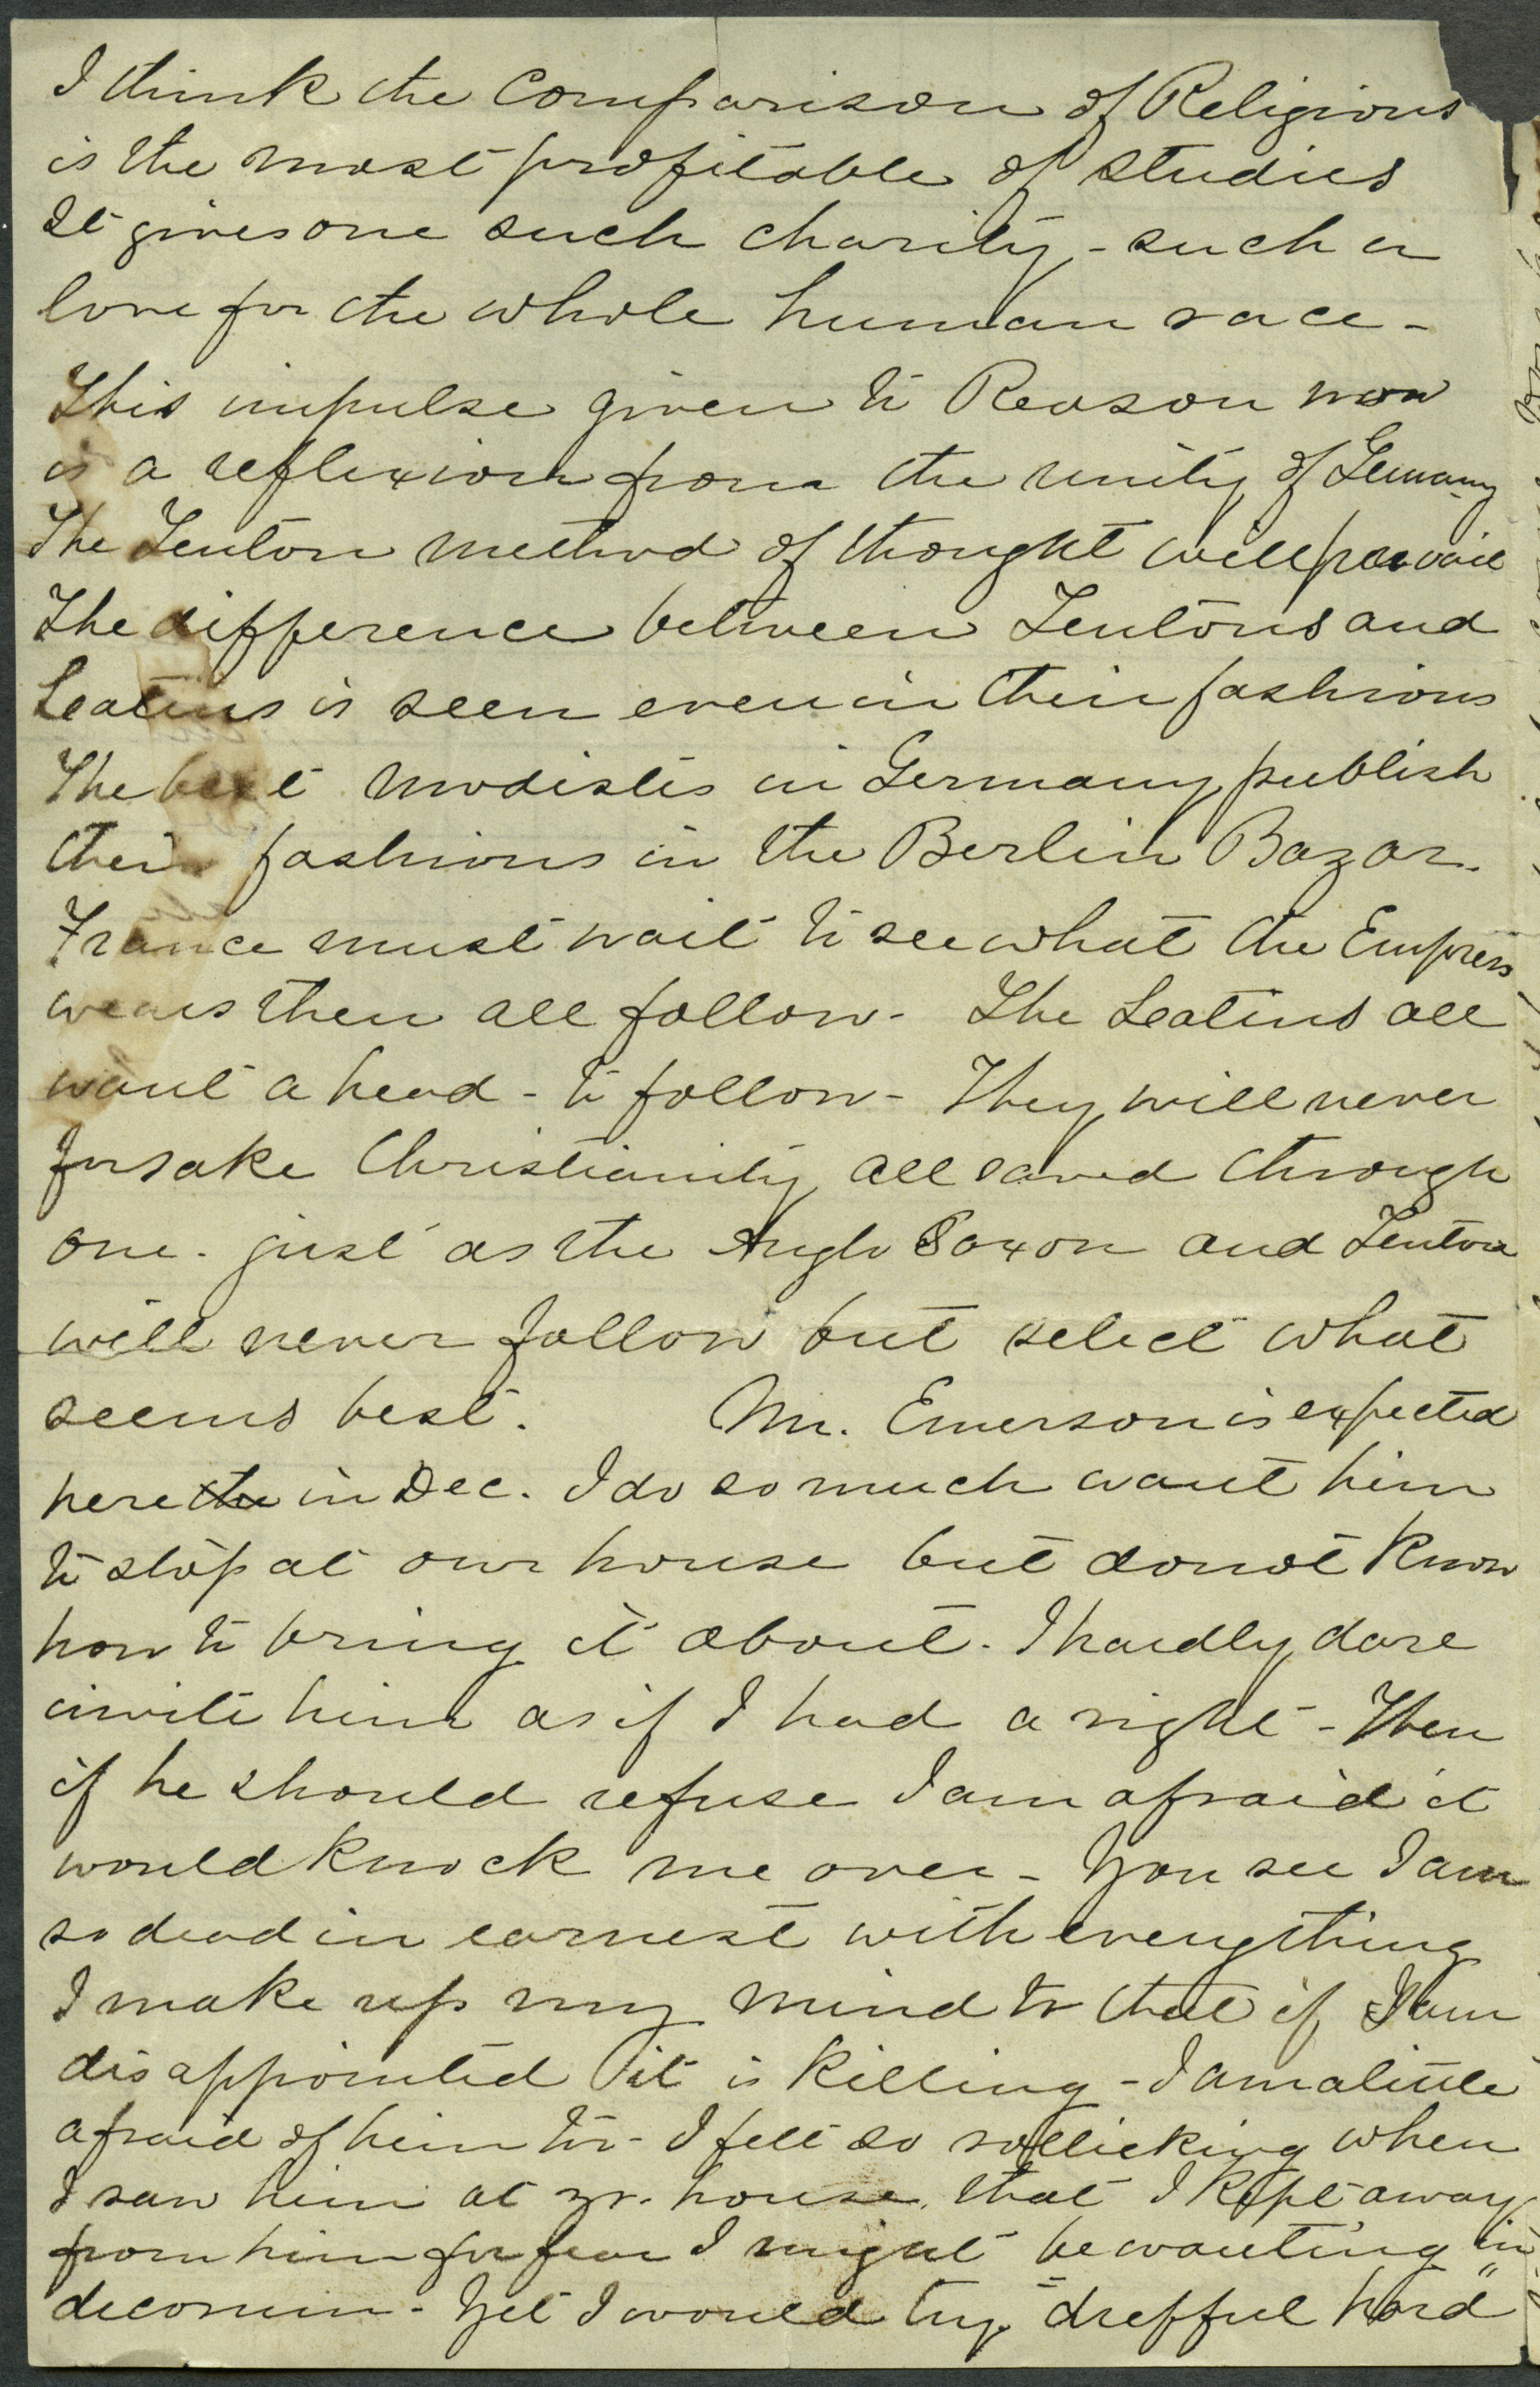 I think the Comparison of Religions
is the most profitable of studies
It gives one such charity - such a
love for the whole human race -
This impulse given to Reason now
is a reflexion from the unity of Germany
The Teuton method of thought will prevail
The difference between Teutons and
Leatins is seen even in their fashions
The best modistes in Germany publish
their fashions in the Berlin Bazar.
France must wait to see what the Empress
wears then all follow - The Leatins all
want a head - to follow - They will never
forsake Christianity, all saved through
one. just as the Anglo Saxon and Teuton
will never follow but select what
seems best. Mr. Emerson is expected
here the in Dec. I do so much want him
to stop at our house but do not know
how to bring it about. I hardly dare
invite him as if I had a right - Then
if he should refuse I am afraid it
would knock me over - You see I am
so dead in earnest with everything
I make up my mind to that if I am
disappointed it is killing - I am a little
afraid of him too - I felt so rollicking when
I saw him at yr. house, that I kept away
from him for fear I might be wanting in
decorum - Yet I would try "drefful hard"